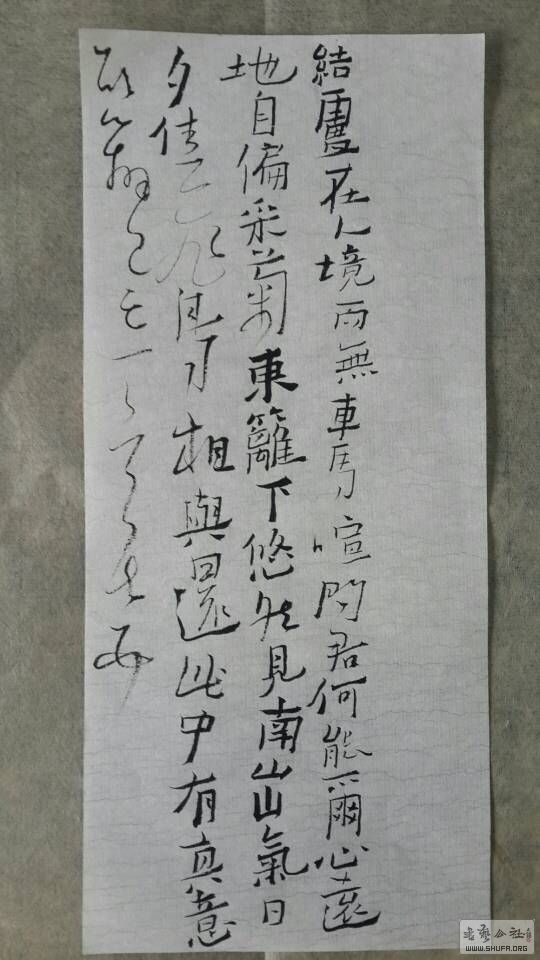 結廬在人境而無車馬喧問君何能爾心遠
地自偏采菊東籬下悠然見南山山氣日
夕佳飛鳥相與還此中有真意
欲辨已忘言
书艺公社
WWW.SHUFA.ORG